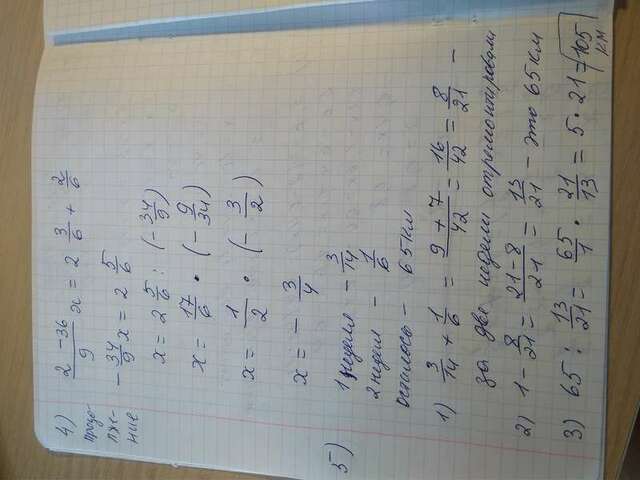 4) (2 - 36)/9 x = 2 3/6 + 2/6
продолжение
- 34/9 x = 2 5/6
x = 2 5/6 : (- 34/9)
x = 17/6 • (- 9/34)
x = 1/2 • (- 3/2)
x = - 3/4
5) 1 неделя - 3/14
2 неделя - 1/6
осталось - 65 км
1) 3/14 + 1/6 = (9 + 7)/42 = 16/42 = 8/21 -
за две недели отремонтировали
2) 1 - 8/21 = (21 - 8)/21 = 13/21 - это 65 км
3) 65 : 13/21 = 65/1 • 21/13 = 5 • 21 = 105 км